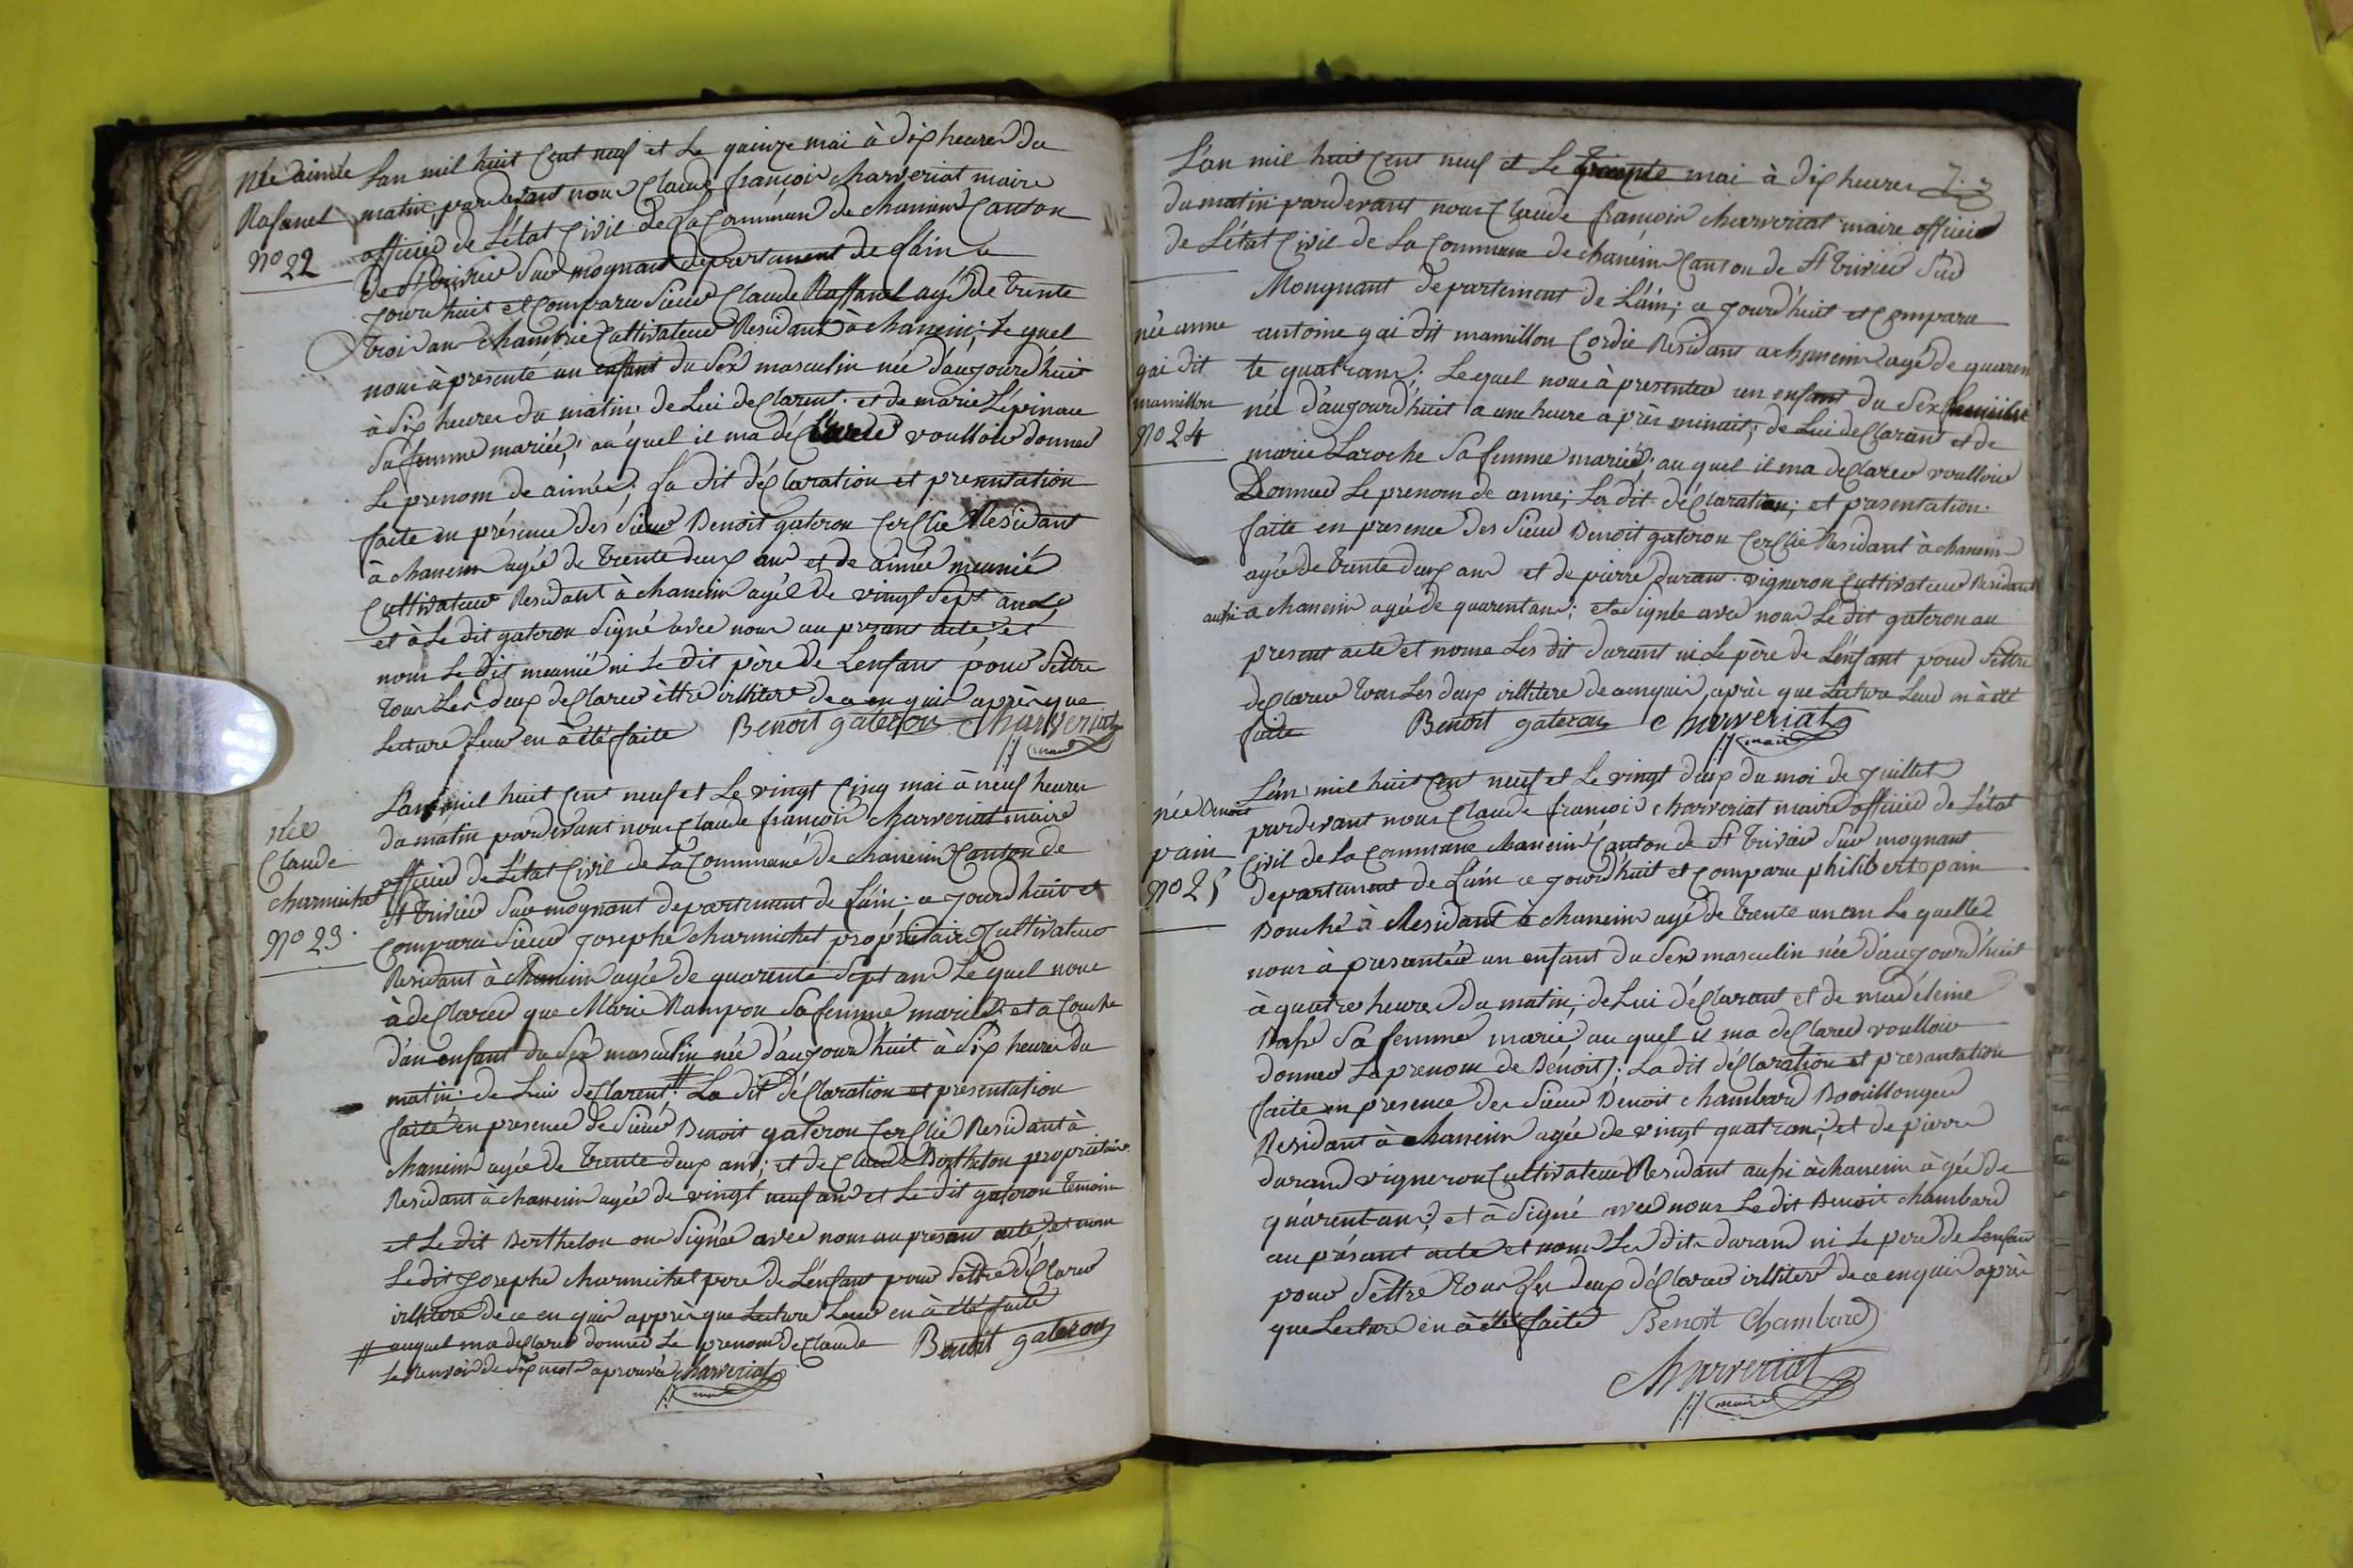 Née aimée
Rafanel
No 22
L'an mil huit Cent neuf et Le quinze mai à dix heures du
matin pardevant nous Claude françois charveriat maire
officié de L'état Civil de La Commune de chanein Canton
de St trivier Sur mognant departement de L'ain ce
jourd'huit et Comparu Sieur Claude Raffanel agé de trente
trois ans Cultivateur Residant à chanein; Le quel
nous à presenté un enfant du Sex masculin née d'aujourd'huit
à Six heures du matin de Lui de Clarent. et de marie Lépinau
Sa femme mariée; au quel il ma dé Claré voulloir donner
Le prenom de aimée; La dit dé Claration et presentation
faite en présence des Sieur Benoit gateron Cer Clié Résidant
à chanein agée de trente deux ans et de aimée meunié
Cultivateur Residant à chanein agéé de vingt Sept ans
et à Le dit gateron Signé avec nous au presans acte, et
nom Le dit meunié ni Le dit père de Lenfant pour Sêttre
tous Les deux de Clarer êttre illiter de ce en quis après que
Lecture Leur en à été faite Benoit gateron Charveriat
maire
née
Claude
charmichet
No 23.
L'an mil huit Cent neuf et Le vingt Cinq mai à neuf heures
du matin pardevant nous Claude françois charveriat maire
officié de L'état Civil de La Commune de chanein Canton de
St trivier Sur mognant departement de L'ain; ce jourd'huit et
Comparu Sieur Josephe charmichet propriétaire Cultivateur
Residant à chanein agée de quarente Sept ans Le quel nous
à de Claré que Marie Rampon Sa femme mariée et a Couche
d'un enfant du Sex masculin née d'aujourd'huit à Six heures du
matin de Lui de Clarent # La dit dé Claration et presentation
faite en presence de Sieur Benoit gateron Cer Clié Residant à
chanein agée de trente deux ans; et de Claude Berthelon propriétaire
Residant à chanein agée de vingt neuf ans et Le dit gateron temoin
et Le dit Berthelon ons Signée avec nous au presans acte, et nom
Le dit Josephe charmichet pere de L'enfant pour Sêttre dé Claré
illitere de ce en quis apprès que Lecture Leur en à été faite
# auquel ma de Claré donner Le prenom de Claude Benoit gateron
Le Renvoi de dix mots aprouvée charveriat
maire
L'an mil huit Cent neuf et Le trente mai à dix heures
du matin pardevant nous Claude françois charveriat maire officié
de L'état Civil de La Commune de chanein Canton de St trivier Sur
Mongnant departement de L'ain; ce jourd'huit et Compara
née anne
gai dit
mamillon
No 24
antoine gai dit mamillon Cordié Residant a chanein agé de quaren
te quatr ans; Lequel nous à presenter un enfant du Sex
née d'aujourd'huit a une heure après minuit; de Lui de Clarant et de
marie Laroche Sa femme mariée; au quel il ma de Clarer voulloir
Donner Le prenom de anne; La dit dé Claration; et presentation.
faite en presence des Sieur Benoit gateron Cer Clié Residant à chanein
agée de trente deux ans et de pierre durant vigneron Cultivateur Residant
aussi a chanein agée de quarent ans; et a Signée avec nous Le dit gateron au
present acte et nome Les dit durant ni Le père de L'enfant pour Sêttre
de Clarer tous Les deux illitere de ce enquis, après que Lecture Leur en à été
faite Benoit gateron Charveriat
maire
née Benoit
pain
No 25
L'an mil huit Cent neuf et Le vingt deux du moi de juillet
pardevant nous Claude françois charveriat maire officié de L'état
Civil de La Commune chanein Canton de St trivier Sur mognant
departement de L'ain ce jourd'huit et Comparu philibert pain
Bouché à Residant à chanein agé de trente un an Le quelle
nous à presantér un enfant du Sex masculin née d'aujourd'huit
à quatre heures du matin; de Lui dé Clarant et de madéleine
Sa femme marié; au quel il ma de Clarer voulloir
donner Le prenom de Bénoit; La dit dé Claration et presantation
faite en présence des Sieur Benoit chambard Bouillonger
Residant à chanein agée de vingt quatr ans; et de pierre
durand vigneron Cultivateur Residant aussi à chanein agée de
quarent ans; et à Signé avec nous Le dit Benoit chambard
au présant acte et nom Les dit durand ni Le pere de Lenfant
pour Sêttre tous Les deux dé Clarer illiter de ce enquis après
que Lecture en à été faite Benoit Chambard
Charveriat
maire